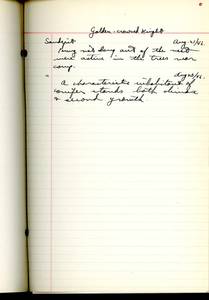 Golden-crowned Kinglet
Sandspit Aug
young not long out of the nest
were active in the trees near
camp.
" Aug
A characteristic inhabitant of
conifer stands both climax
& second growth